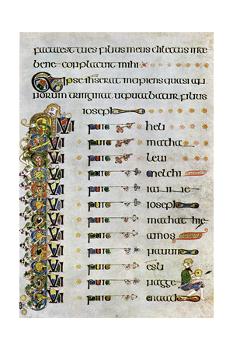 factaest tu es filius meus dilectus inte
bene conplacuit mihi
Et ipse ihs erat incipiens quasi an
norum triginta ut putabatur filius
ioseph
QUI fuit heli
QUI fuit matha
QUI fuit levi
QUI fuit melchi
QUI fuit iannae
QUI fuit ioseph
QUI fuit mathathie
QUI fuit amos
QUI fuit nauum
QUI fuit esli
QUI fuit nagge
QUI fuit